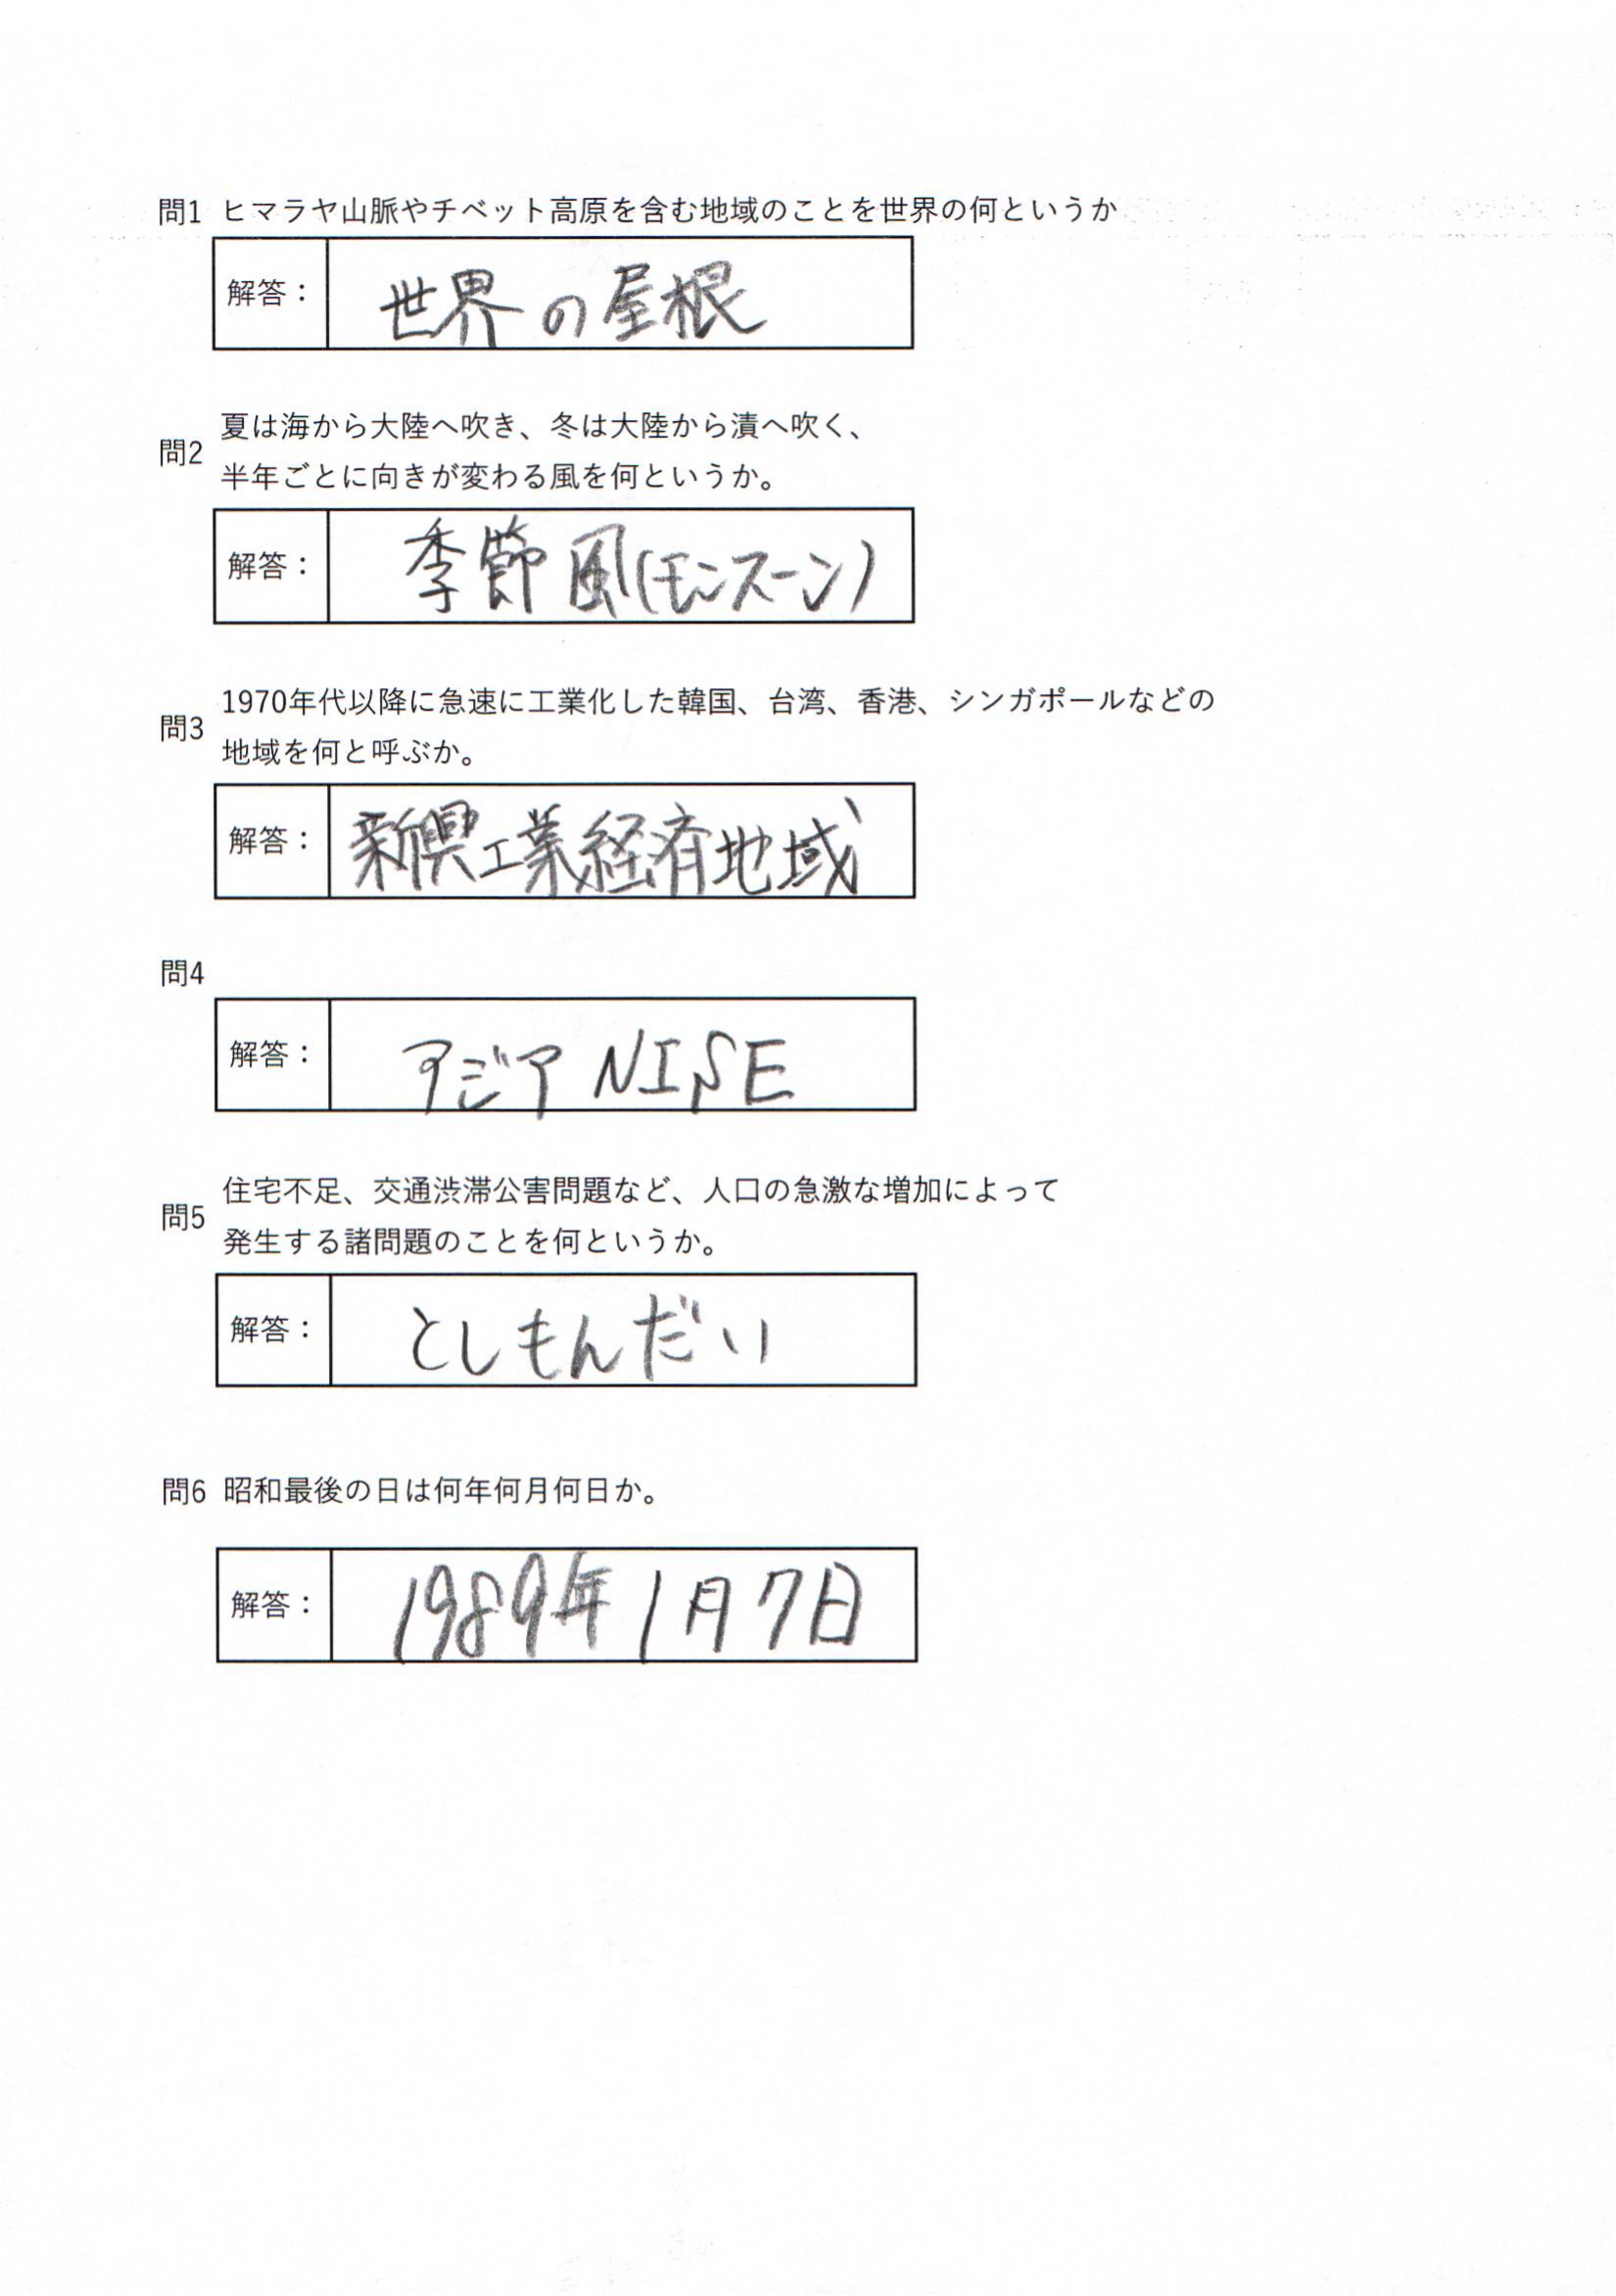 問1 ヒマラヤ山脈やチベット高原を含む地域のことを世界の何というか
解答： 世界の屋根
夏は海から大陸へ吹き、冬は大陸から漬へ吹く、
問2
半年ごとに向きが変わる風を何というか。
解答： 季節風(モンスーン)
1970年代以降に急速に工業化した韓国、台湾、香港、シンガポールなどの
問3
地域を何と呼ぶか。
解答： 新興工業経済地域
問4
解答： アジアNISE
住宅不足、交通渋滞公害問題など、人口の急激な増加によって
問5
発生する諸問題のことを何というか。
解答： としもんだい
問6 昭和最後の日は何年何月何日か。
解答： 1989年1月7日